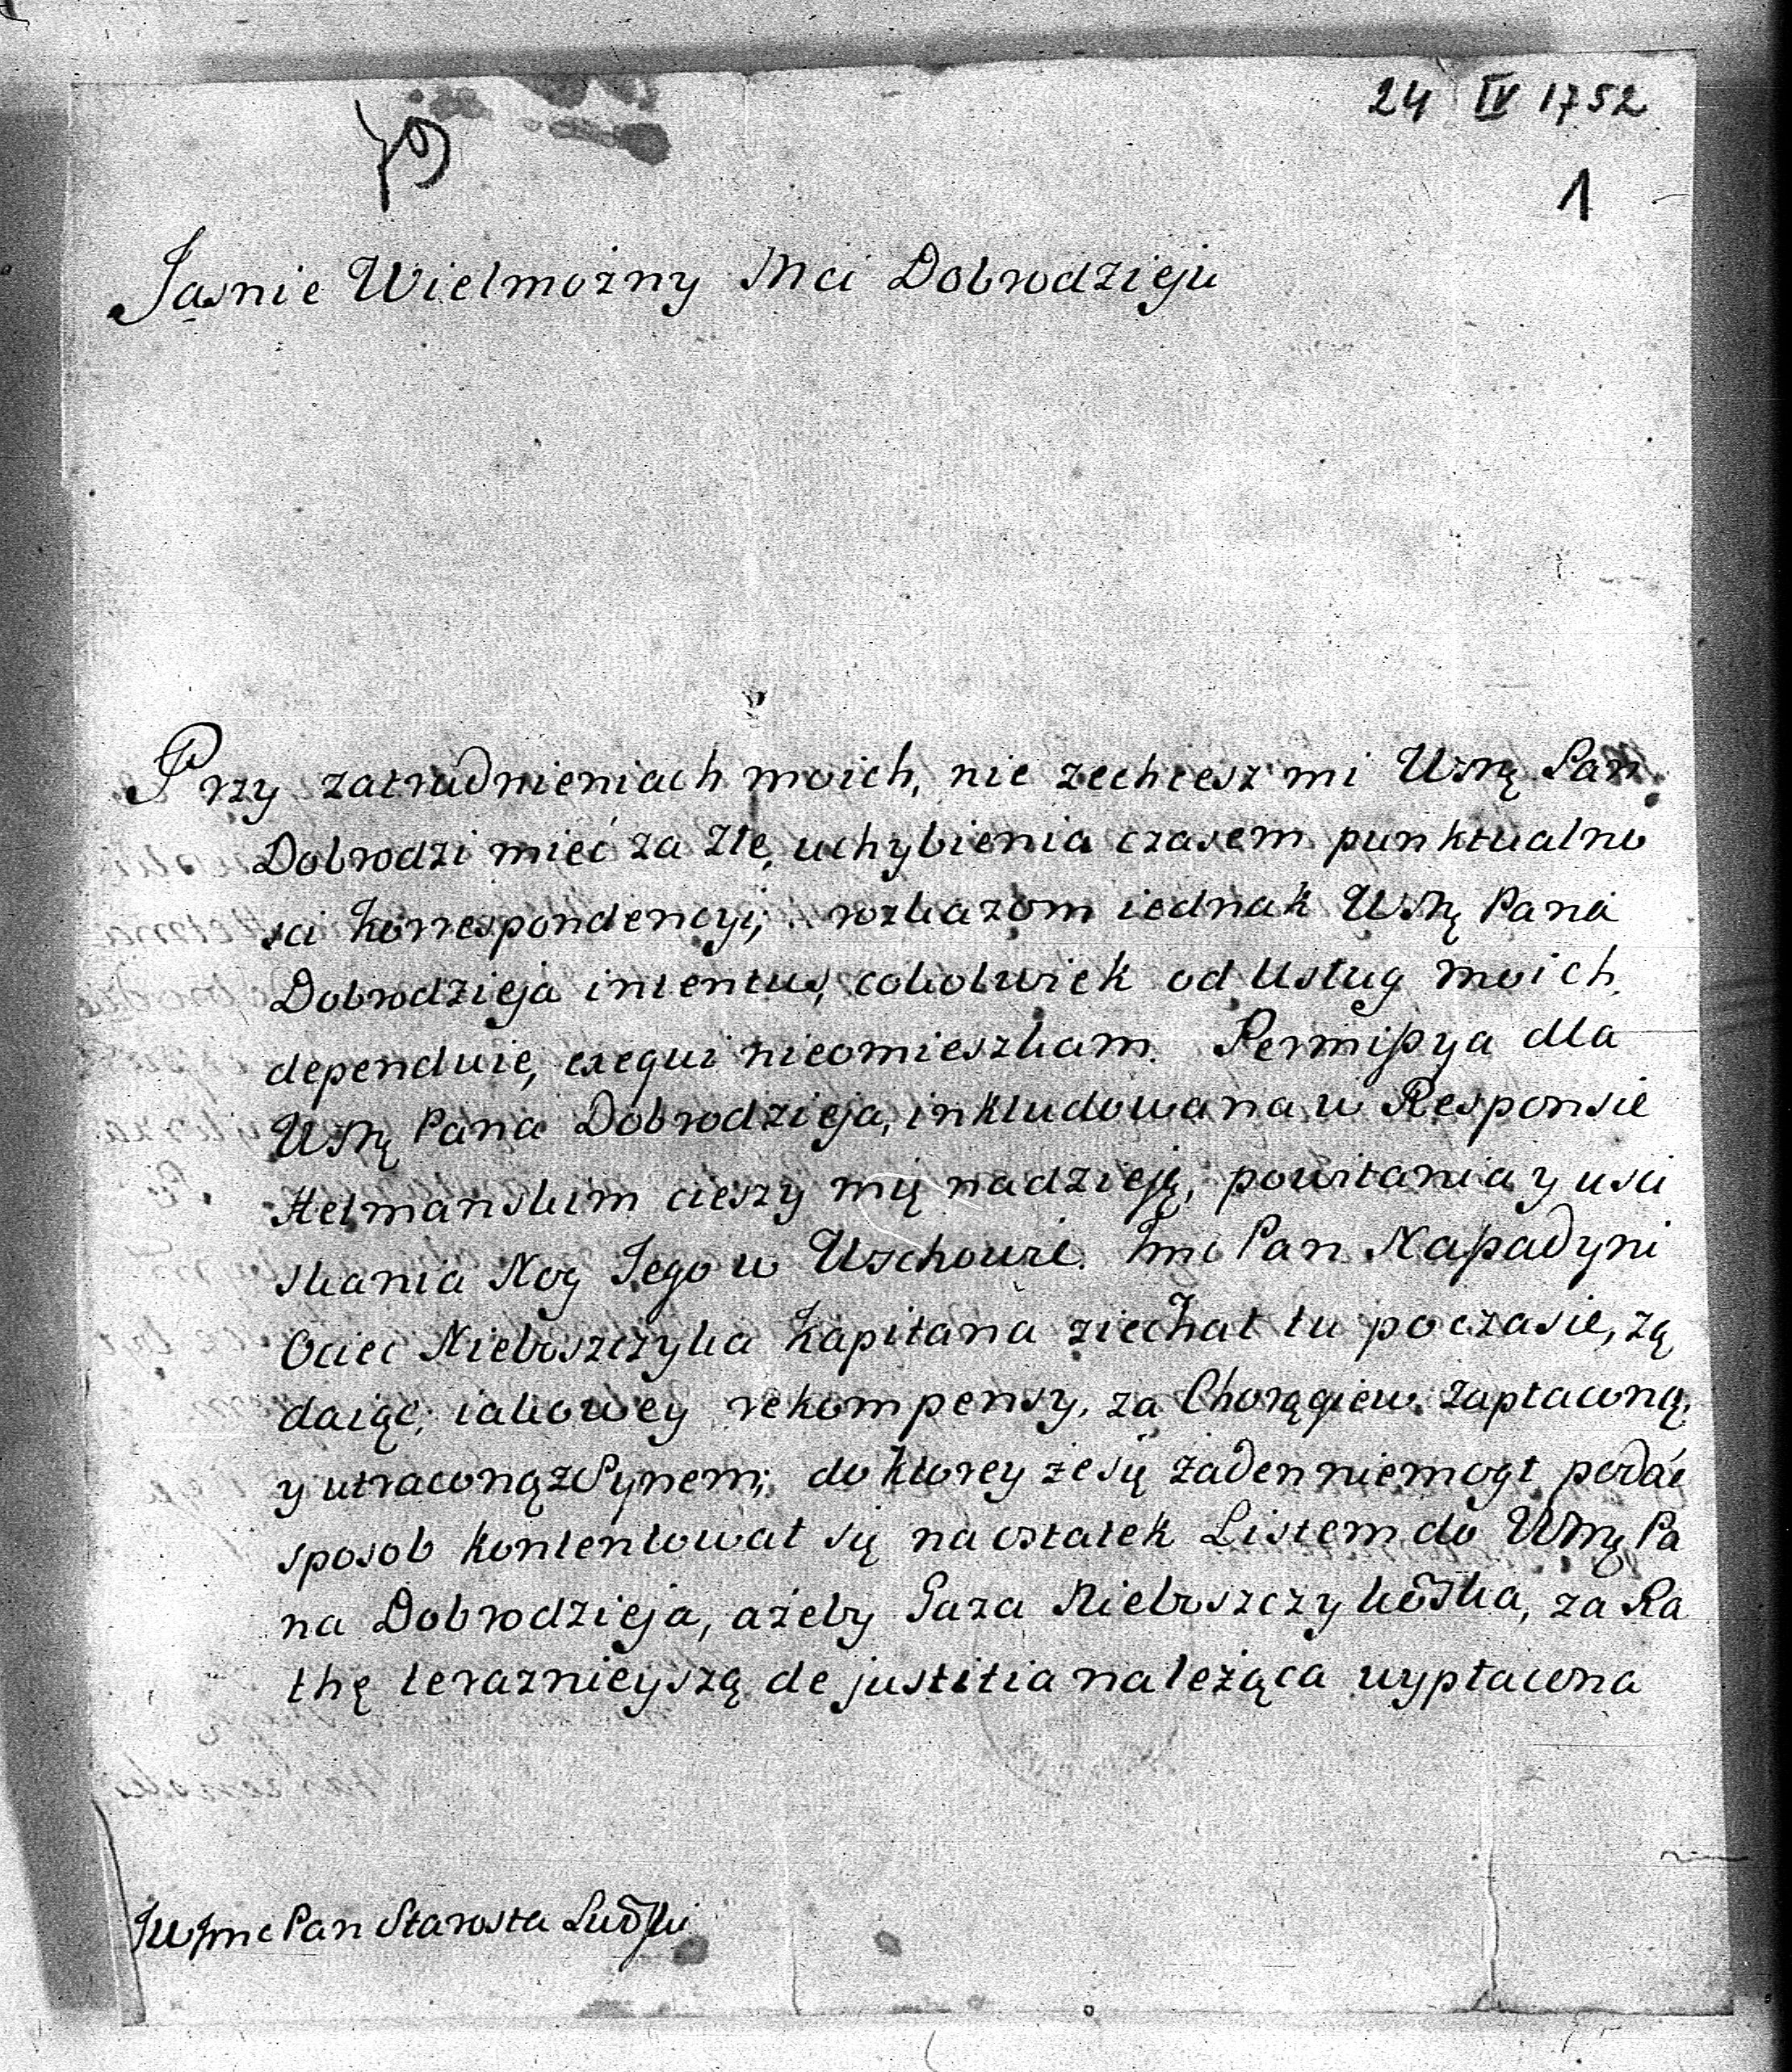 24 IV 1752
1
Jasnie Wielmozny Mci Dobrodzieju
Przy zatrudnieniach moich, nie zechcesz mi Pan
Dobrodzi mieć za złe, uchybienia czasem punktualno
sci korrespondencyi; rozkazom iednak Pana
Dobrodzieja intentus, cokolwiek od Usług moich
dependuie, exequi nieomieszkam. Permissya dla
Pana Dobrodzieja, inkludowana w Responsie
Hetmanskim cieszy mię nadzieją, powitania y usci
skania Nog Jego w Wschowie. Imć Pan
Ociec Nieboszczyka Kapitana ziechał tu po czasie, żą
daiąc, iakowey rekompensy, za Chorągiew zapłaconą,
y utraconą z Synem; do ktorey że się żaden niemogł podać
sposob kontentował się na ostatek Listem do Pa
na Dobrodzieja, ażeby Gaza Nieboszczykowska, za Ra
thę teraznieyszą de justitia należąca wypłacona
JWJmc Pan Starosta